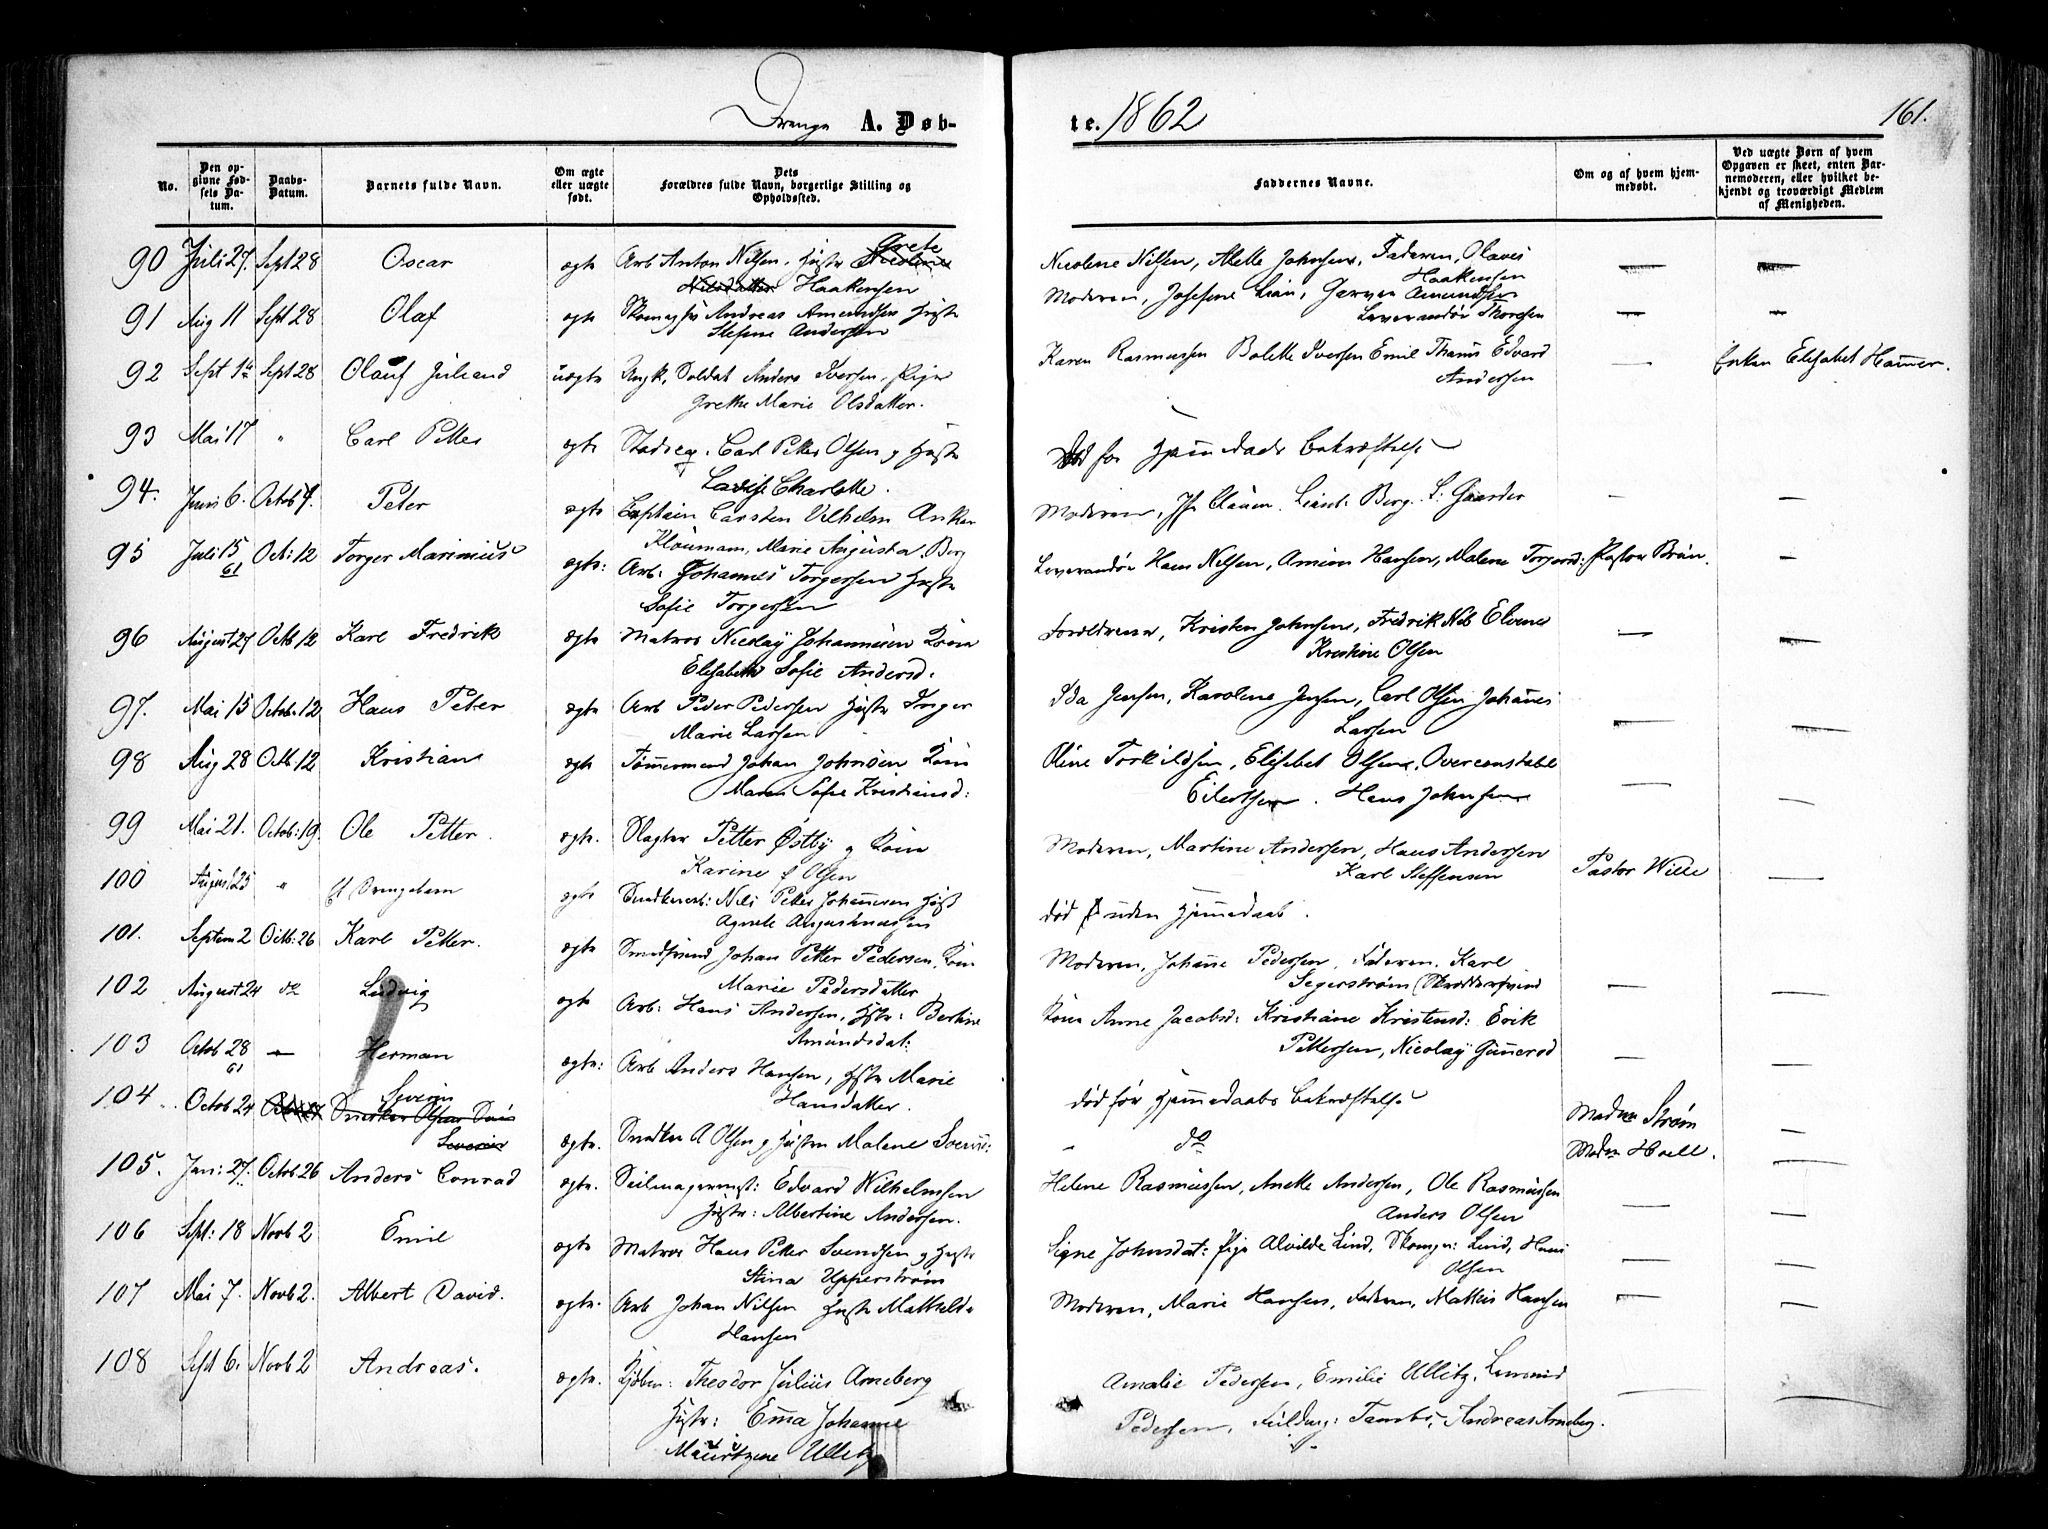 Drenge A. Døb-
te. 1862
161.
No.
Den op-
givne Fød-
sels Da-
tum.
Daabs-
Datum.
Barnets fulde Navn.
Om ægte
eller uægte
født.
Dets
Forældres fulde Navn, borgerlige Stilling og
Opholdssted.
Faddernes Navne.
Om og af hvem hjem-
medøbt.
Ved uægte Børn af hvem
Opgaven er skeet, enten Bar-
nemoderen, eller hvilket be-
kjendt og troværdigt Medlem
af Menigheden.
90 Juli 27. Sept 28 Oscar ægte Arb Anton Nilsen, Hustr Grete
Haakensen
Nicolene Nilsen, Johnsen, Faderen, Olaves
Haakensen
91 Aug 11 Sept 28 Olaf ægte Andreas Amundsen Hustr
Stefine Andersen
Moderen, Josefine Lian, Garver Amundsen
Leverandør Thoresen
92 Sept 1 Sept 28 Olauf Juliand uægte Soldat Anders Iversen. Pige
Grethe Marie Olsdatter.
Karen Rasmussen Bolette Iversen Emil Edvard
Andersen
Enken Elisabet Hammer.
93 Mai 17 " Carl Petter ægte Carl Petter Olsen g Hustr
Charlotte.
Død før Hjemmedaabs Bekræftelse
94. Juni 6. Octob Peter ægte Captain Carsten Vilhelm Anker
Kloumann, Marie Augusta Berg
Moderen, Berg. S: Gaarder
95 Juli 15 61 Oct: 12 Torger Marinius ægte: Arb: Johannes Torgersen Hustr
Sofie Torgersen
Leverandør Hans Nilsen, Hansen, Malene Pastor Brun.
96 August 27 Octb 12 Karl Fredrik ægte Matros Nicolay Johannesen Kone
Elisabeth Sofie Andersd.
Forældrene, Kristen Johnsen, Fredrik
Kristine Olsen
97. Mai 15 Octob. 12 Hans Peter ægte Arb Peder Pedersen Hustr Inger
Marie Larsen
Ida Jensen, Karolene Jensen, Carl Olsen Johannes
Larsen
98 Aug 28 Octb. 12 Kristian ægte Tømmermand Johan Johnsen Kone
Maren Sofie Kristiansd:
Oline Torkildsen, Elisabet Olsen, Overconstabel
Eilertsen. Hans Johnsen
99 Mai 21. Octob: 19. Ole Petter. ægte. Slagter Petter Østby g Kone
Karine f Olsen
Moderen, Martine Andersen, Hans Andersen
Karl Steffensen
Pastor Wille
100 August 25 " Et Drengebarn ægte Snedkerarb: Nils Petter Johannesen Hust
Agnete Augustinussen
død uden Hjemmedaab.
101. Septem 2 Octb: 26 Karl Petter. ægte Johan Petter Pedersen, Kone
Marie Pedersdatter
Moderen, Johanne Pedersen, Faderen, Karl
Segerstrøm (Skræddersvend
102 August 24 do Ludvig ægte Arb: Hans Andersen, Hstr: Bertine
Amundsdat:
Kone Anne Jacobsd: Kristiane Kristensd: Erik
Pettersen, Nicolay Gunnersd
103 Octob 28 61 Herman ægte: Arb Anders Hansen, Hstr Marie
Hansdatter.
død før Hjemmedaabs bekræftelse
Madm Strøm
104 Octob 24 Severin
Snedker Olsens
Severin
ægte. Snedker A Olsen g Hustru Malene
" do
Madm Hoell.
105. Jan: 27. Octob. 26 Anders Conrad ægte. Seilmagermst: Edvard Wilhelmsen
Hustr: Albertine Andersen.
Helene Rasmussen, Anette Andersen, Ole Rasmussen
Anders Olsen
106 Sept: 18 Novb 2 Emil ægte Matros Hans Petter Svendsen g Hustr
Stina Upperstrøm
Signe Johnsdat: Pige Alvilde Lind, Skomgr: Lind, Hans
Olsen
107 Mai 7. Novb 2. Albert David. ægte. Arb Johan Nilsen Hustr Mathilde
Hansen
Moderen, Marie Hansen, Faderen, Mattis Hansen
108 Sept 6. Novb 2 Andreas. ægte. Kjøbm: Theodor Julius Arneberg
Hustr: Emma Johanne
Mauritzene Ullitz
Amalie Pedersen, Emilie Ullitz,
Pedersen, Fuldmg: Tambs, Andreas Arneberg.